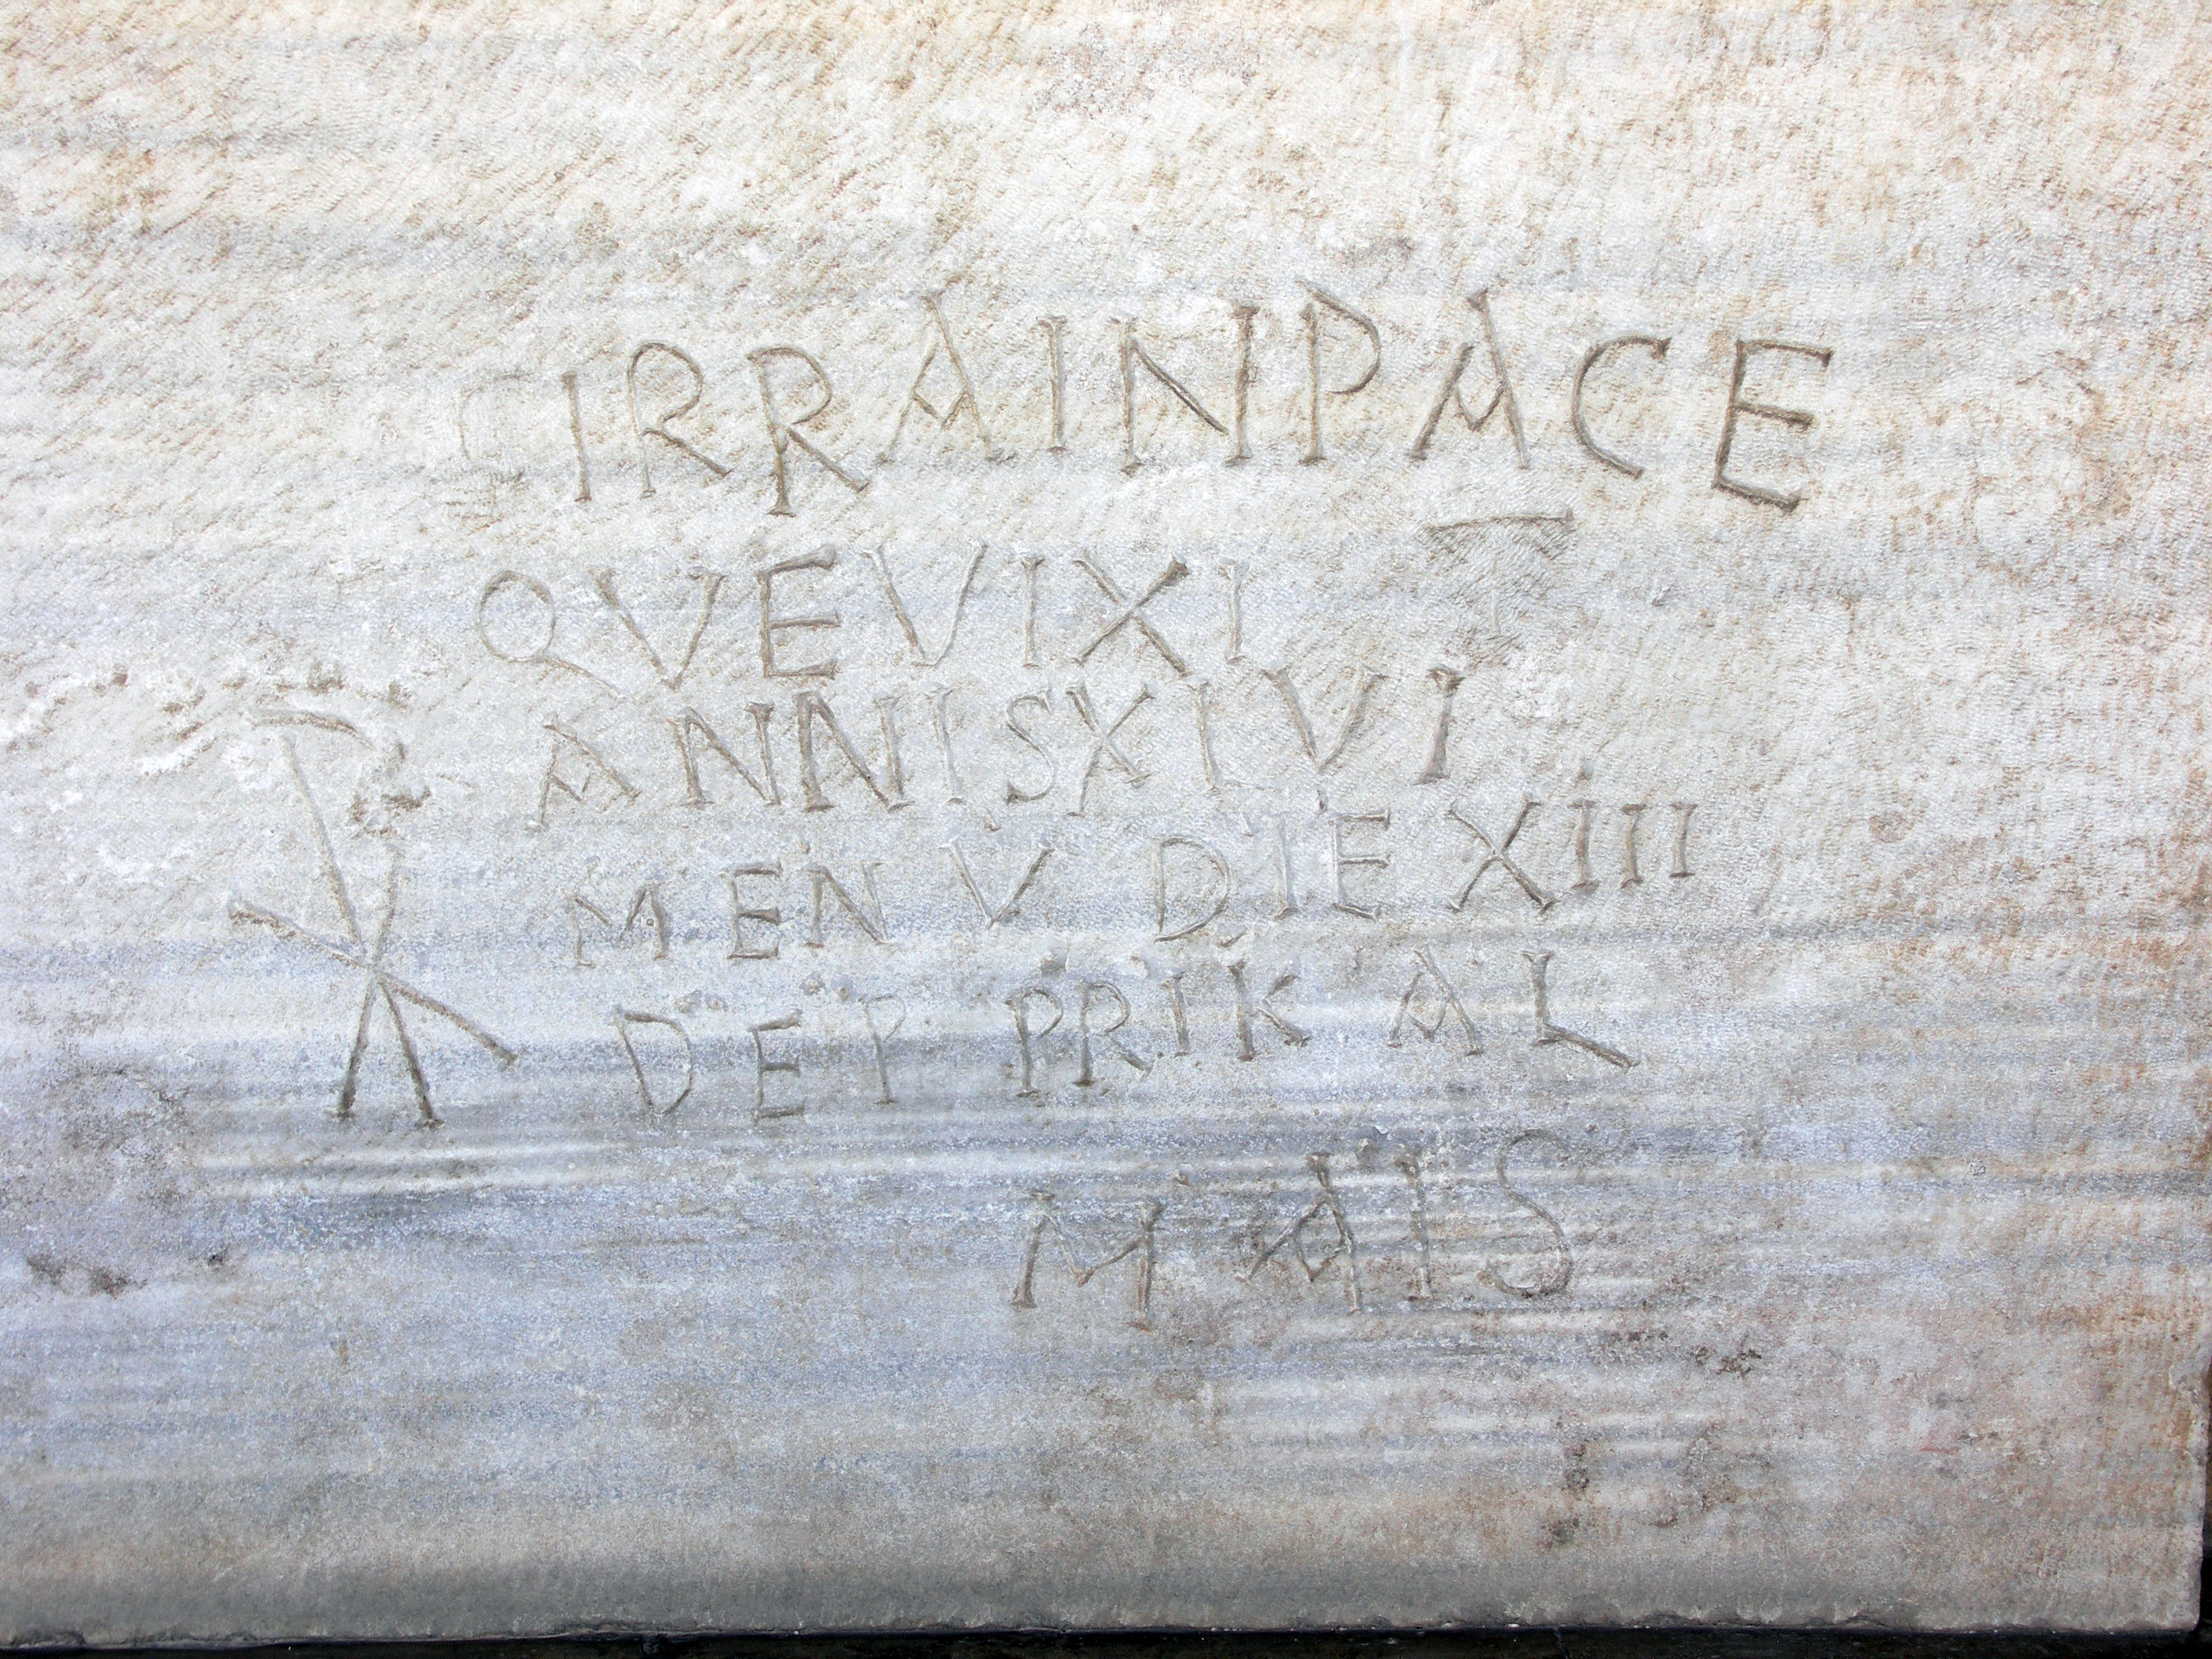 CIRRAINPACE
QVEVIXIT
ANNISXIVI
MENV DIEXIII
DEP PRIKAL
MAIS